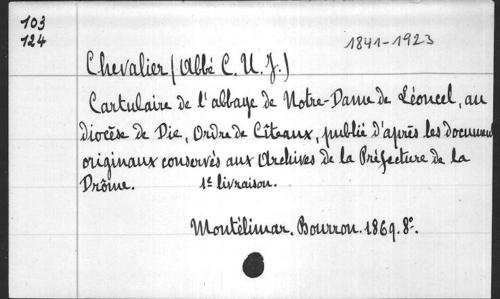 103
124
1841-1923
Chevalier (Abbé C. U. J.)
Cartulaire de l'abbaye de Notre-Dame de Léoncel, au
diocèse de Die, Ordre de Cîteaux, publié d'après les document
originaux conservés aux Archives de la Préfecture de la
Drôme. 1e livraison.
Montélimar. Bourron. 1869. 8°.